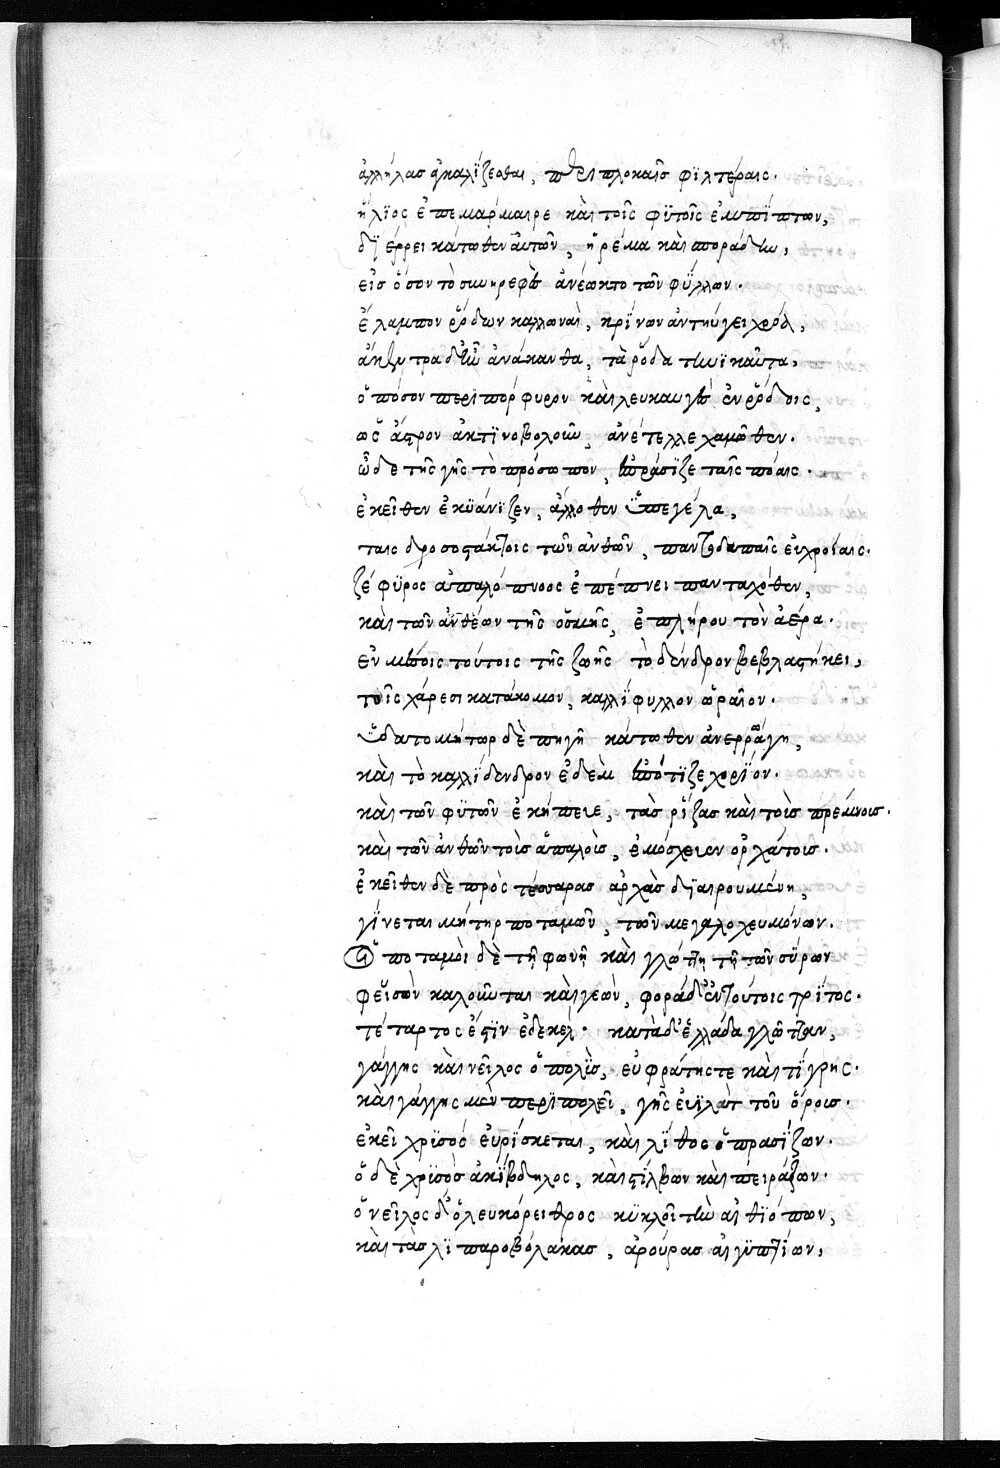 ἀλλήλας ἀγκαλίζεσθαι, περιπλοκαῖς φιλτέραις.
ἥλϊος ἐπεμάρμαιρε καὶ τοῖς φϋτοῖς ἐμπΐπτων,
δϊέρρει κάτωθεν αὐτῶν, ἠρέμα καὶ σποράδην,
εἰς ὅσον τὸ συνηρεφὲς ἀνέωκτο τῶν φΰλλων.
ἔλαμπον ῥόδων καλλοναὶ, κρΐνων ἀντηύγει χρόα,
ἄκεντρα δ' ἦν ἀνάκανθα, τὰ ῥόδα τηνικαῦτα,
ὁπόσον περιπόρφυρον καὶ λευκαυγὲς ἐν ῥόδοις,
ὡς ἄστρον ἀκτϊνοβολοῦν, ἀνέτελλε χαμόθεν.
ὧδε τῆς γῆς τὸ πρόσωπον, ἐπράσϊζε ταῖς πόαις.
ἐκεῖθεν ἐκϋάνϊζεν, ἄλλοθεν ὑπεγέλα,
ταῖς δροσοστάκτοις τῶν ἀνθῶν, παντοδαπαῖς εὐχροίαις.
ζέφϋρος ἁπαλόπνοος ἐπέπνει πανταχόθεν,
καὶ τῶν ἀνθέων τῆς ὀσμῆς, ἐπλήρου τὸν ἀέρα.
ἐν μέσοις τούτοις τῆς ζωῆς τὸ δένδρον βεβλαστήκει,
τοῖς χάρεσι κατάκομον, καλλΐφυλλον ὡραῖον.
ὑδατομήτωρ δὲ πηγὴ κάτωθεν ἀνερράγη,
καὶ τὸ καλλΐδενδρον ἐδὲμ ἐπότϊζε χορϊόν.
καὶ τῶν φϋτῶν ἐκήπευε, τὰς ρΐζας καὶ τοῖς πρέμνοις.
καὶ τῶν ἀνθῶν τοῖς ἁπαλοῖς, ἐμόσχευεν ὀρχάτοις.
ἐκεῖθεν δὲ πρὸς τέσσαρας ἀρχὰς δϊαιρουμένη,
γίνεται μήτηρ ποταμῶν, τῶν μεγαλοχευμόνων.
οἱ ποταμοὶ δὲ τῇ φωνῇ καὶ γλώττῃ τῇ τῶν σύρων
φεισὼν καλοῦνται καὶ γεὼν, φορὰδ ἐν τούτοις τρΐτος.
τέταρτος ἐστὶν ἐδεκὲλ. κατὰ δ' ἑλλάδα γλῶτταν,
γάγγης καὶ νεῖλος ὁ πολῒς, εὐφράτης τε καὶ τΐγρης.
καὶ γάγγης μὲν περιπολεῖ, γῆς εὐϊλὰτ τοῦ ὅροις.
ἐκεῖ χρϊσός εὐρΐσκεται, καὶ λΐθος ὁ πρασΐζων.
ὁ δὲ χρϊσὸς ἀκΐβδηλος, καὶ στίλβων καὶ πειράζων.
ὁ νεῖλος δ' ὁ λευκόρειθρος κϋκλοῖ τὴν αἰθϊόπων,
καὶ τὰς λϊπαροβόλακας, ἀρούρας αἰγϋπτίων,